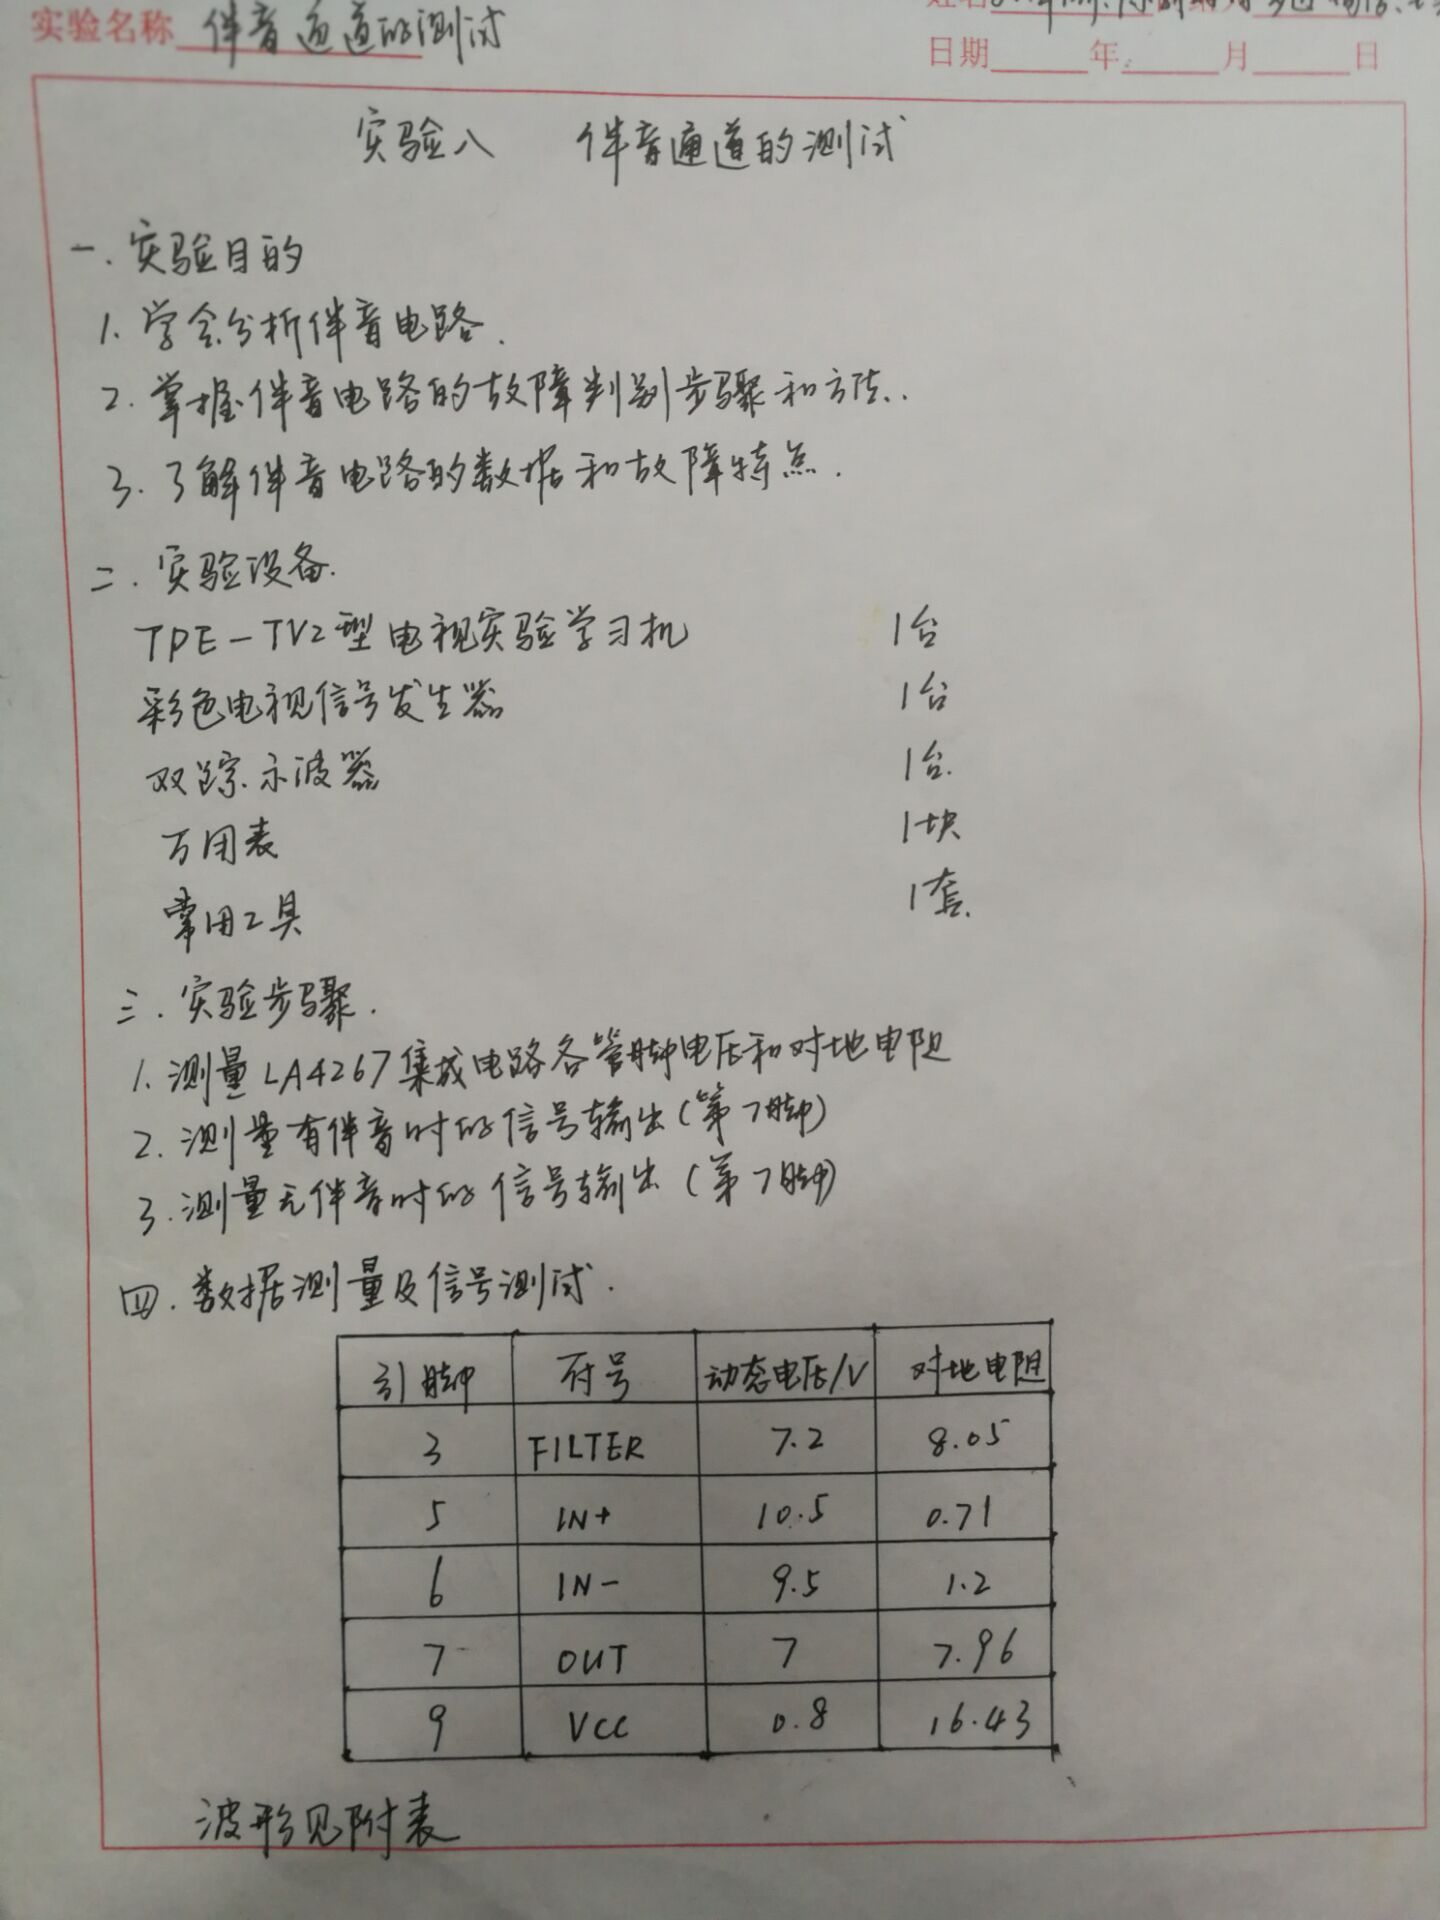 实验名称 伴音通道的测试
姓名
日期 年 月 日
实验八 伴音通道的测试
一.实验目的
1.学会分析伴音电路.
2.掌握伴音电路的故障判别步骤和方法.
3.了解伴音电路的数据和故障特点.
二.实验设备.
TPE-TV2型电视实验学习机 1台
彩色电视信号发生器 1台
双踪示波器 1台.
万用表 1块
常用工具 1套.
三.实验步骤.
1.测量LA4267集成电路各管脚电压和对地电阻
2.测量有伴音时的信号输出(第7脚)
3.测量无伴音时的信号输出(第7脚)
四.数据测量及信号测试.
引脚 符号 动态电压/V 对地电阻
3 FILTER 7.2 8.05
5 IN+ 10.5 0.71
6 IN- 9.5 1.2
7 OUT 7 7.96
9 VCC 0.8 16.43
波形见附表